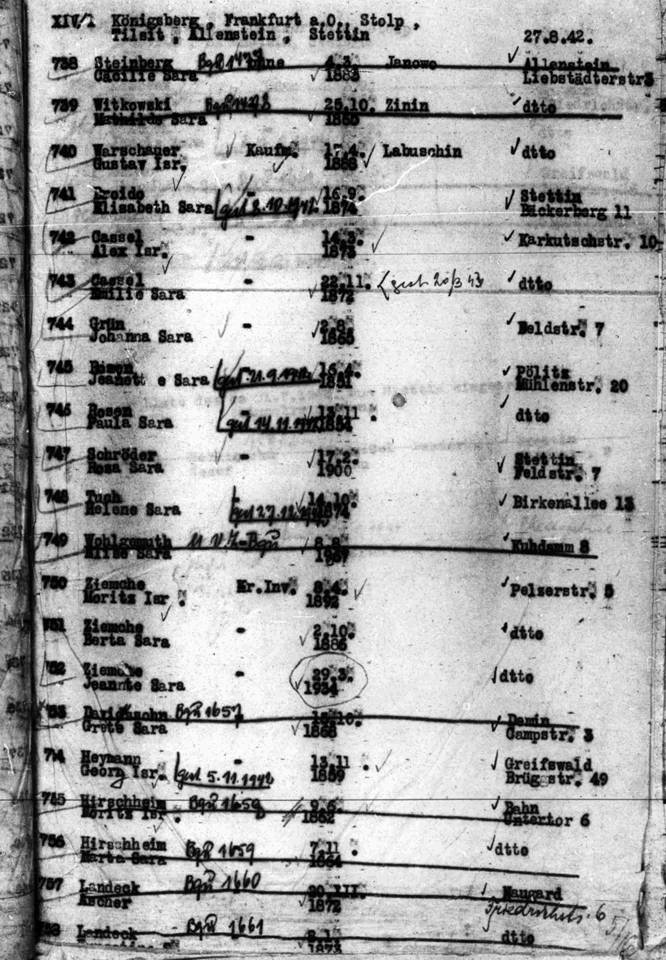 XIV/1 Königsberg, Frankfurt a.O., Stolp,
Tilsit, Allenstein, Stettin 27.8.42.
738 Steinberg ohne 4.3. Janowo Allenstein
Cäcilie Sara 1883 Liebstädterstr
739 Witkowski 25.10. Zinin dtto
Mathilde Sara 1880
740 Warschauer Kaufm. 17.4. Labuschin dtto
Gustav Isr. 1888
741 - 16.9. Stettin
Elisabeth Sara gest 2.10.1942 1874 Bäckerberg 11
742 Cassel - 14. Karkutschstr. 10
Alex Isr. 1873
743 Cassel - 22.11. gest 20/3 43 dtto
Emilie Sara 1872
744 Grün - 2.8. Feldstr. 7
Johanna Sara 1865
745 Rosen 16.4. Pölitz
Jeanett e Sara 1851 Mühlenstr. 20
746 Rosen 13.11. dtto
Paula Sara gest 14.11.1942
747 Schröder - 17.2. Stettin
Rosa Sara 1900 Feldstr. 7
748 Tuch 14.10. Birkenallee 13
Helene Sara 1874
749 Wohlgemuth 8.8. Kuhdamm 8
Sara
750 Ziemche Kr.Inv. 8.4. Pelzerstr. 5
Moritz Isr. 1892
751 Ziemche - 2.10. dtto
Berta Sara 1886
752 Ziemche - 29.3. dtto
Jeannte Sara 1934
753 Davidsohn Bgü 1657 10. Demin
Grete Sara 1868 Campstr. 3
754 Heymann 13.11. Greifswald
Georg Isr. gest 5.11.1942 1859 Brüggstr. 49
755 Hirschheim Bgü 1658 9.6. Bahn
Moritz Isr. 1862 Untertor 6
756 Hirschheim Bgü 1659 7.11. dtto
Marta Sara 1864
757 Landeck Bgü 1660 20.III. Naugard
Ascher 1872 Friedrichstr. 6
758 Landeck Bgü 1661 8.1. dtto
1873